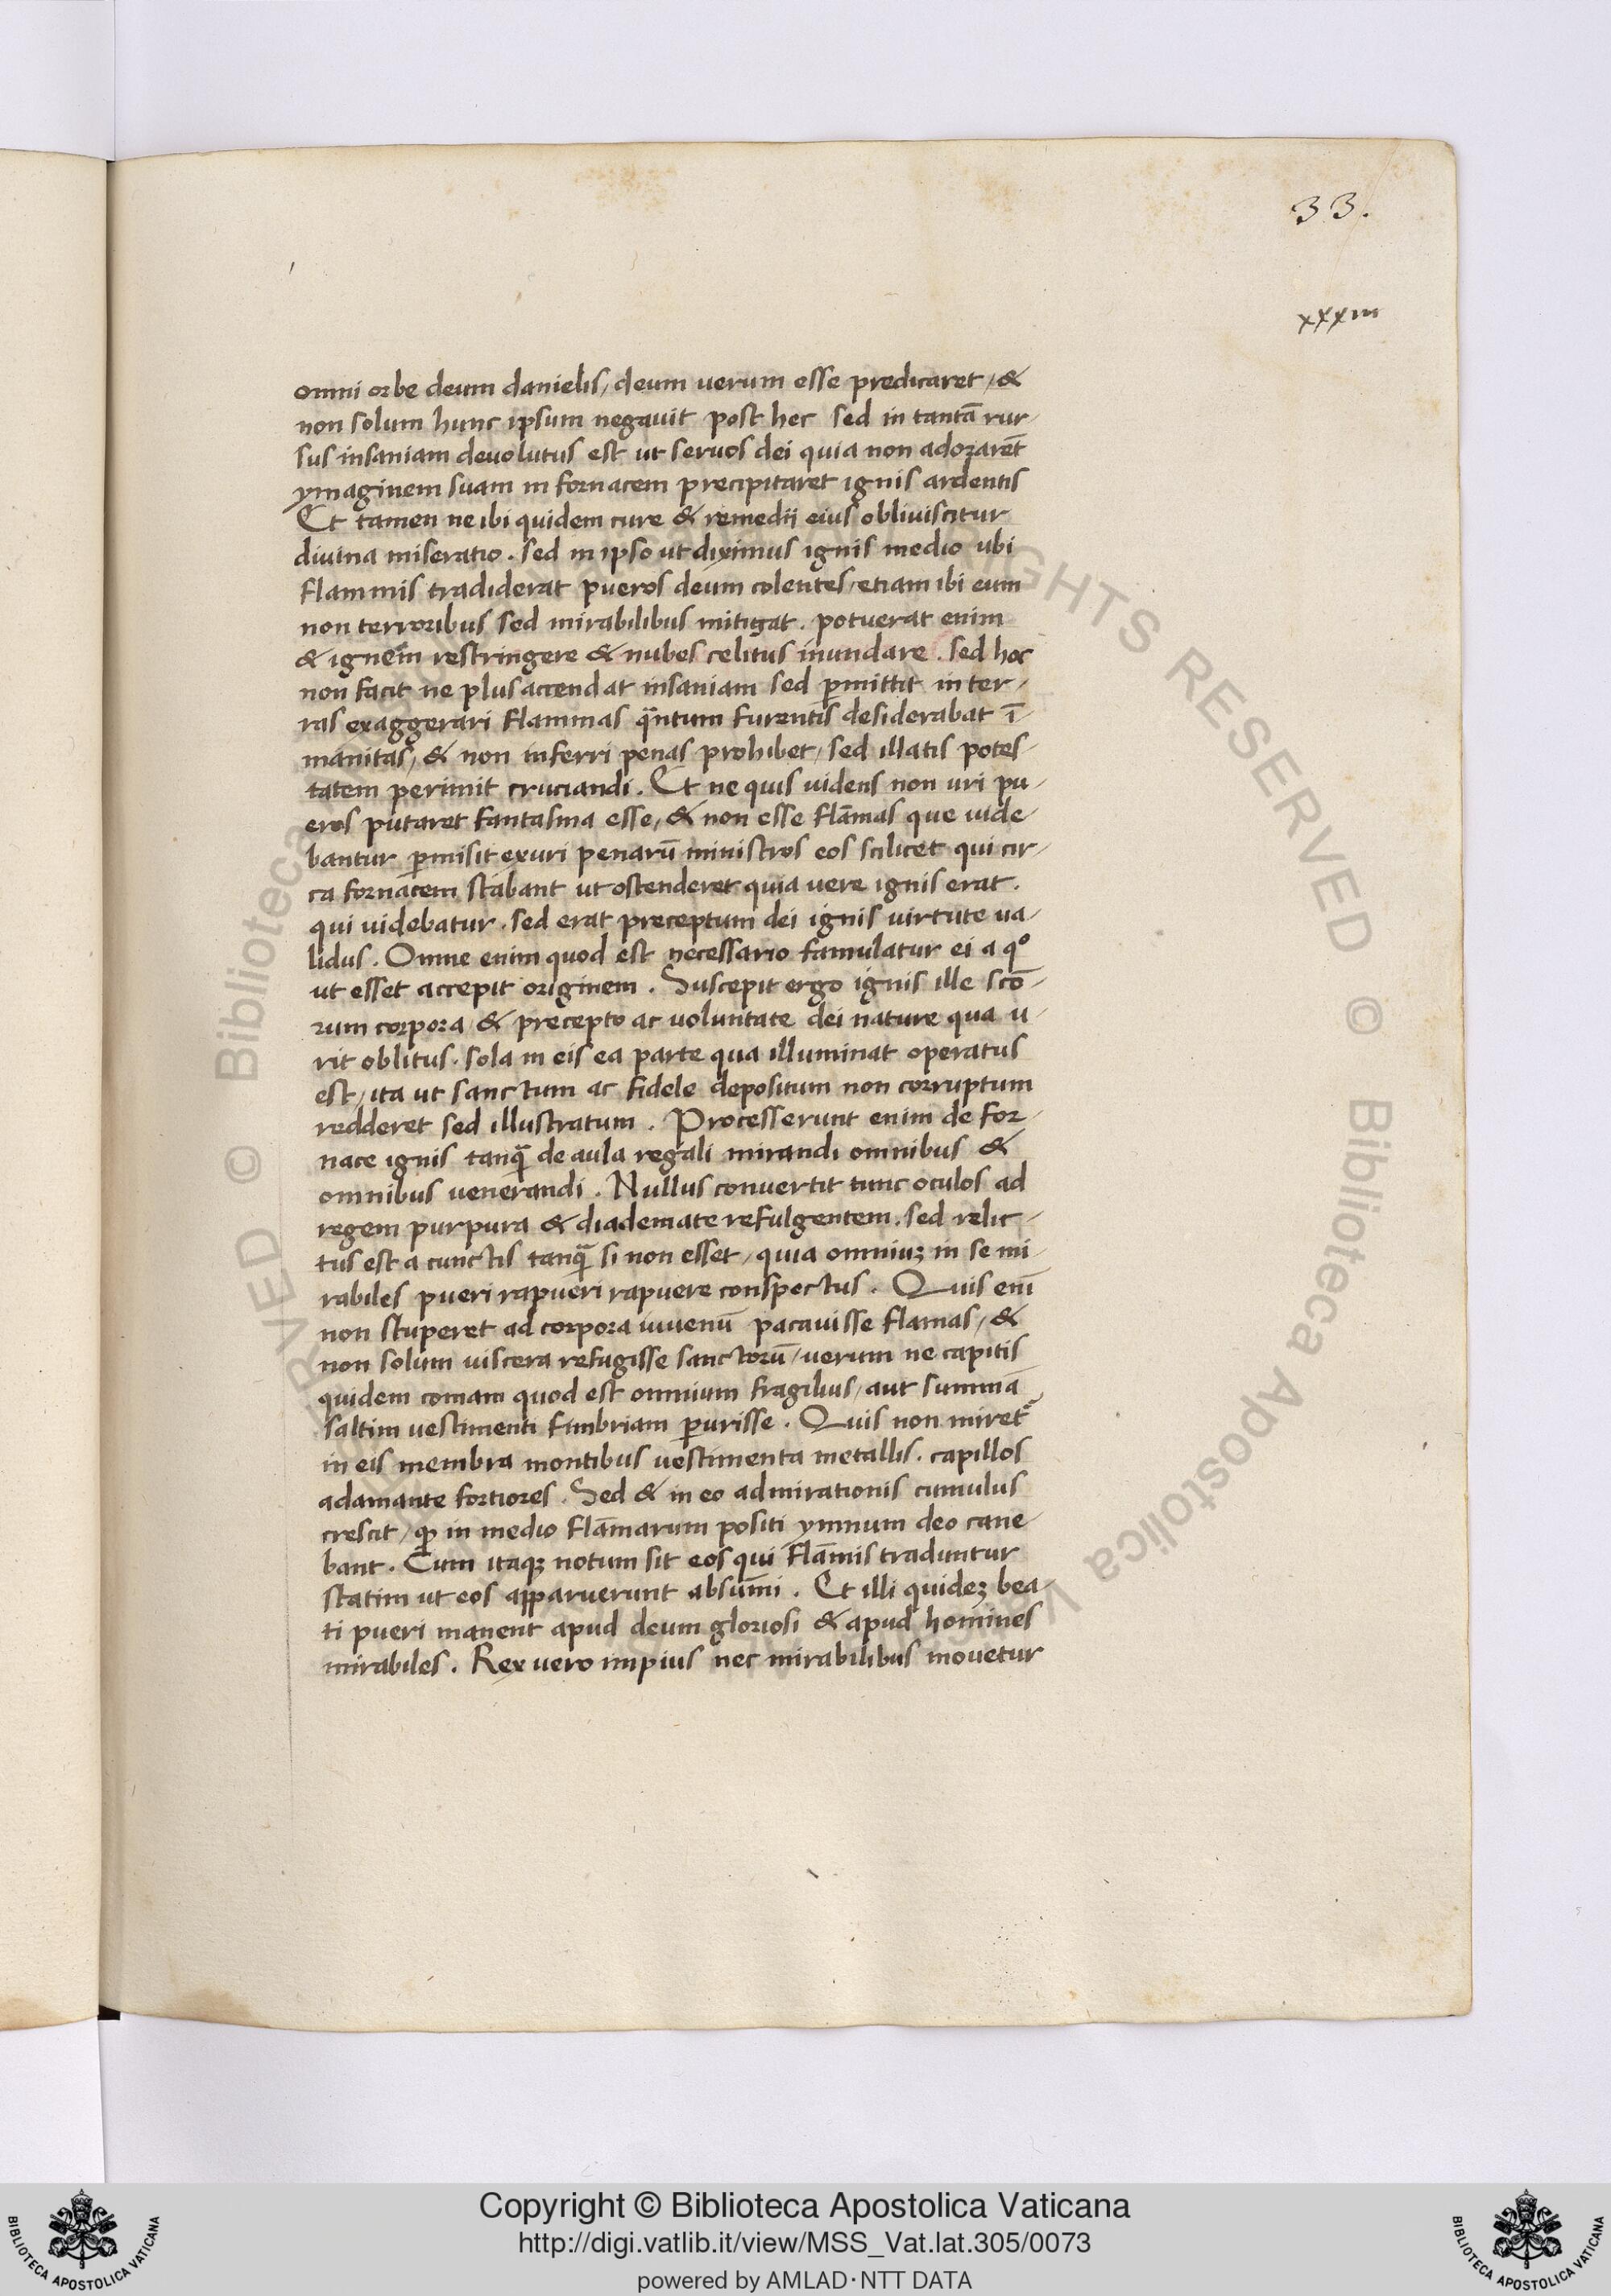 33.
xxxiii
omni orbe deum danielis, deum uerum esse predicaret, &
non solum hunc ipsum negauit post hec sed in tantā rur-
sus insaniam deuolutus est ut seruos dei quia non adorarēt
ymaginem suam in fornacem precipitaret ignis ardentis
Et tamen ne ibi quidem cure & remedii eius obliuiscitur
diuina miseratio. sed in ipso ut diximus ignis medio ubi
flammis tradiderat pueros deum colentes, etiam ibi eum
non terroribus sed mirabilibus mitigat. potuerat enim
& ignem restringere & nubes celitus inundare. sed hoc
non facit ne plus accendat insaniam sed ꝑmittit in ter-
ras exaggerari flammas qāntum furentis desiderabat ī-
manitas, & non inferri penas prohibet, sed illatis potes-
tatem perimit cruciandi. Et ne quis uidens non uri pu-
eros putaret fantasma esse, & non esse flāmas que uide-
bantur ꝑmisit exuri penarū ministros eos scilicet qui cir-
ca fornacem stabant ut ostenderet quia uere ignis erat.
qui uidebatur. sed erat preceptum dei ignis uirtute ua-
lidus. Omne enim quod est necessario famulatur ei a qo
ut esset accepit originem. Suscepit ergo ignis ille scō-
rum corpora & precepto ac uoluntate dei nature qua u-
rit oblitus. sola in eis ea parte qua illuminat operatus
est, ita ut sanctum ac fidele depositum non corruptum
redderet sed illustratum. Processerunt enim de for-
nace ignis tanq̄ de aula regali mirandi omnibus &
omnibus uenerandi. Nullus conuertit tunc oculos ad
regem purpura & diademate refulgentem. sed relic-
tus est a cunctis tanq̄ si non esset, quia omniuȝ in se mi-
rabiles pueri rapueri rapuere conspectus. Quis enī
non stuperet ad corpora iuuenū pacauisse flamas, &
non solum uiscera refugisse sanctorū, uerum ne capitis
quidem comam quod est omnium fragilius, aut summā
saltim uestimenti fimbriam ꝑurisse. Quis non miret᷑
in eis membra montibus uestimenta metallis. capillos
adamante fortiores. Sed & in eo admirationis cumulus
crescit, ꝙ in medio flāmarum positi ymnum deo cane-
bant. Cum itaqȝ notum sit eos qui flāmis traduntur
statim ut eos apparuerunt absūmi. Et illi quideȝ bea-
ti pueri manent apud deum gloriosi & apud homines
mirabiles. Rex uero impius nec mirabilibus mouetur
Copyright © Biblioteca Apostolica Vaticana
http://digi.vatlib.it/view/MSS_Vat.lat.305/0073
powered by AMLAD·NTT DATA
BIBLIOTECA APOSTOLICA VATICANA
BIBLIOTECA APOSTOLICA VATICANA